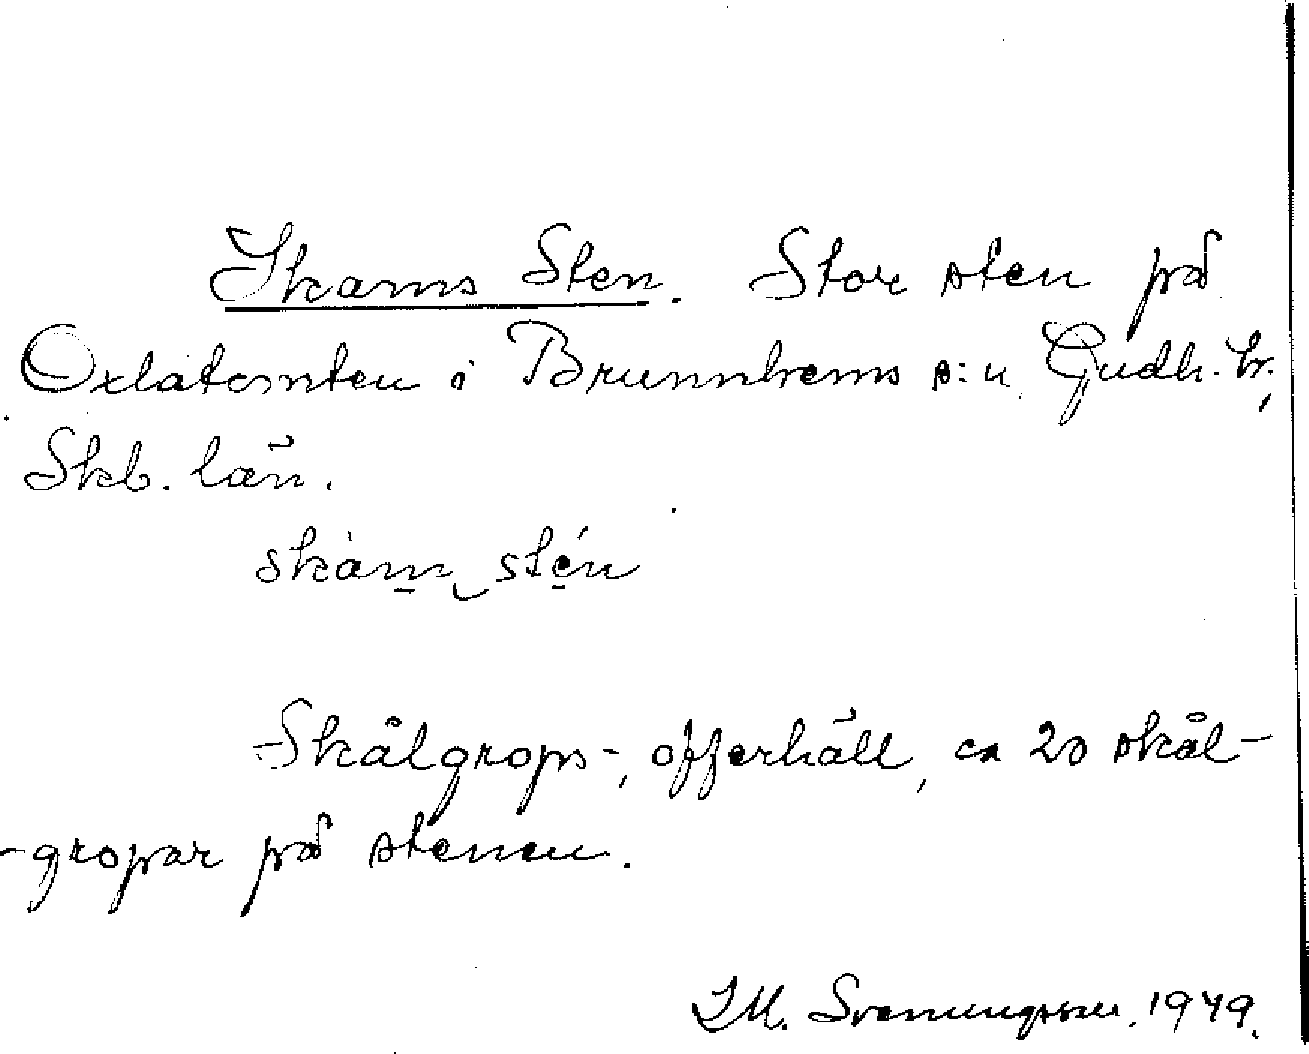 Skams Sten. Stor sten på
Oxlatomten i Brunnhems s:n Gudh. hr.,
Skb. län.
skàm͜ stén
Skålgrops-, offerhäll, ca 20 skål-
-gropar på stenen.
I M. Svenungsson. 1949.